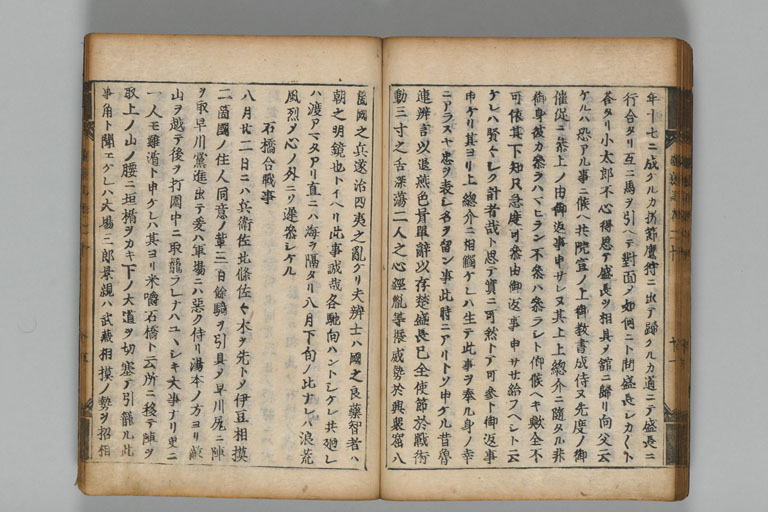 年十七ニ成グルカ折節鷹狩ニ出テ歸クルカ道ニテ盛長ニ
行合タリ互ニ馬ヲ引ヘテ對面ノ如何ニト問盛長シカ〱ト
荅タリ小太郎不心得思テ盛長ヲ相具ノ舘ニ歸リ向父云
ケルハ恐アル事ニ候ヘ共院宣ノ上御教書成侍ヌ先度ノ御
催促ニ参上ノ由御返事申サレヌ其上上總介ニ随タル非
御身彼カ参ラハマヒラン不参ハ参ラシト仰候ヘキ歟全不
可依其下知只急度可参由御返事申サセ給フヘシト云
ケレハ賢々シク計者哉ト思テ實ニ可然トテ可参ト御返事
申ケリ其ヨリ上總介ニ相觸ケレハ生テ此事ヲ奉ル身ノ幸
ニアラスヤ忠ヲ表シ名ヲ留ン事此時ニアリトソ申ケル昔魯
連辨言以退燕色骨單辭以存楚盛長已全使節於戰術
動三寸之舌深蕩二人之心經胤等振威勢於興衰窟八
箇國之兵遂治四夷之亂グリ夫辨士ハ國之良藥智者ハ
朝之明鏡也トイヘリ此事誠哉各馳向ハントシケレ共廻レ
ハ渡アマタアリ直ニハ海ヲ隔タリ八月下旬ノ比ナレハ浪荒
風烈ク心ノ外ニソ遅参シケル
石橋合戰事
八月廿二日ニハ兵衛佐北條佐々木ヲ先トノ伊豆相摸
二箇國ノ住人同意ノ輩三百餘騎ヲ引具ノ早川尻ニ陣
ヲ取早川黨進出テ爰ハ軍場ニハ惡ク侍リ湯本ノ方ヨリ敵
山ヲ越テ後ヲ打圍中ニ取籠ラレナハユヽシキ大事ナリ更ニ
一人モ難遁ト申ケレハ其ヨリ米嚙石橋ト云所ニ移テ陣ヲ
取上ノ山ノ腰ニ垣楯ヲカキ下ノ大道ヲ切塞テ引籠ル此
事角ト聞エケレハ大場三郎景親ハ武藏相摸ノ勢ヲ招相